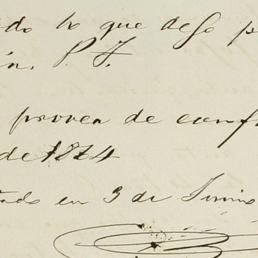 do lo que dejo p
n. P. J.
provea de conf
de 1874
tado en 3 de Junio